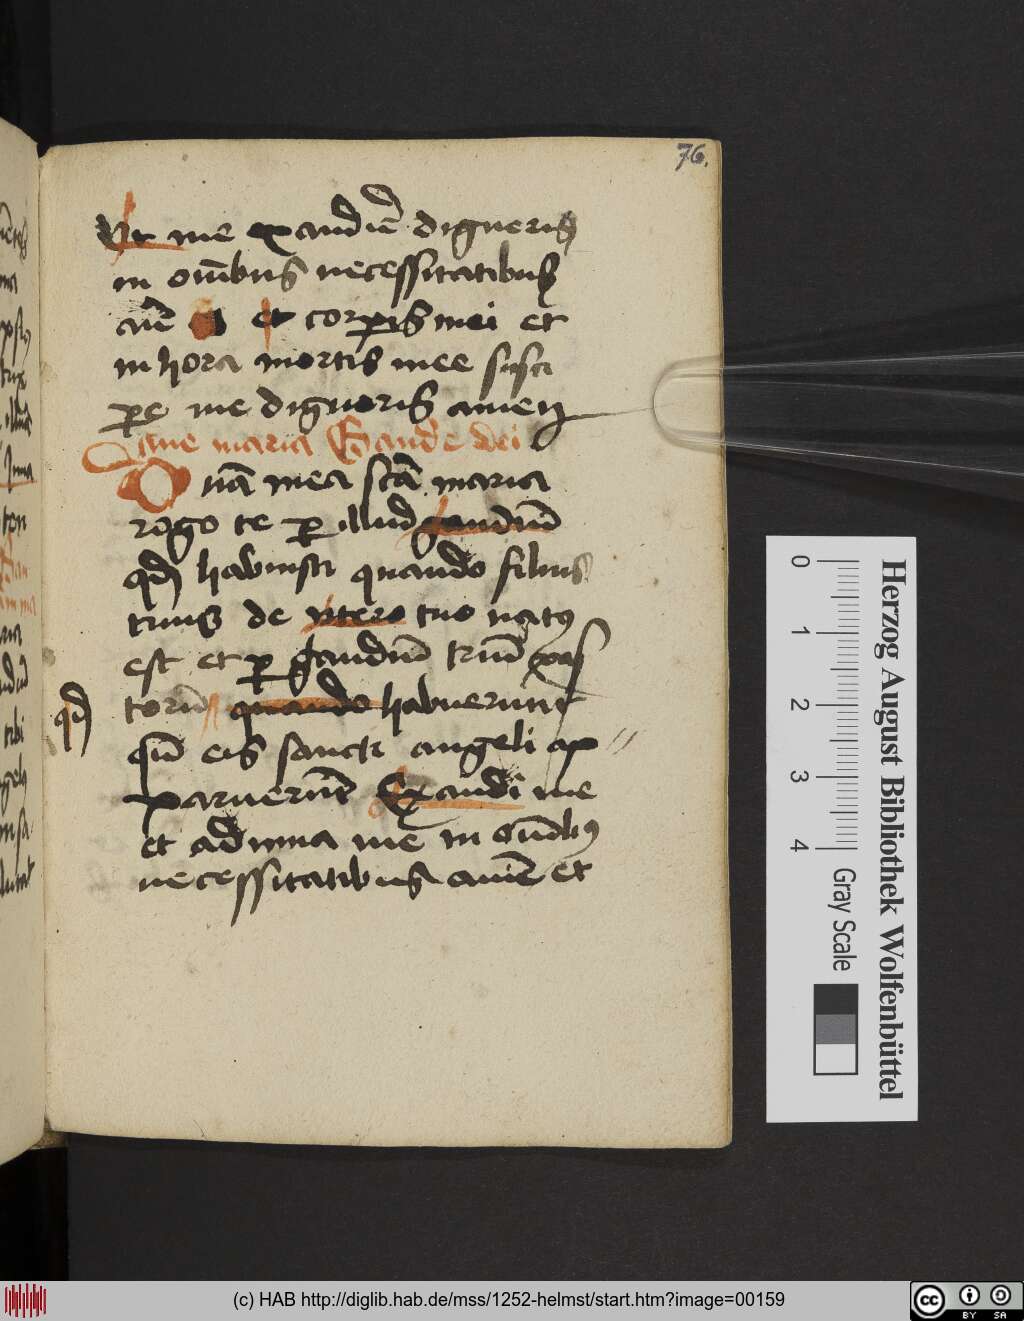 76.
Ut me exaudiē digneris
in om̄ibus necessitatibus
aīe et corꝑis mei et
in hora mortis mee susci
ꝑe me digneris amen
Ave maria Gaude dei
Dn̄a mea sc̄a maria
rogo te ꝑ illud gaudiū
qd̄ habuisti quando filius
tuus de utero tuo natꝰ
est et ꝑ gaudiū tuū pas
torū quando habuerunt
qd̄
cū eis sancti angeli ap
paruerūt Exaudi me
et adiuua me in om̄ibꝰ
necessitatibus amē et
Herzog August Bibliothek Wolfenbüttel
0 1 2 3 4 Gray Scale
(c) HAB http://diglib.hab.de/mss/1252-helmst/start.htm?image=00159
cc BY SA